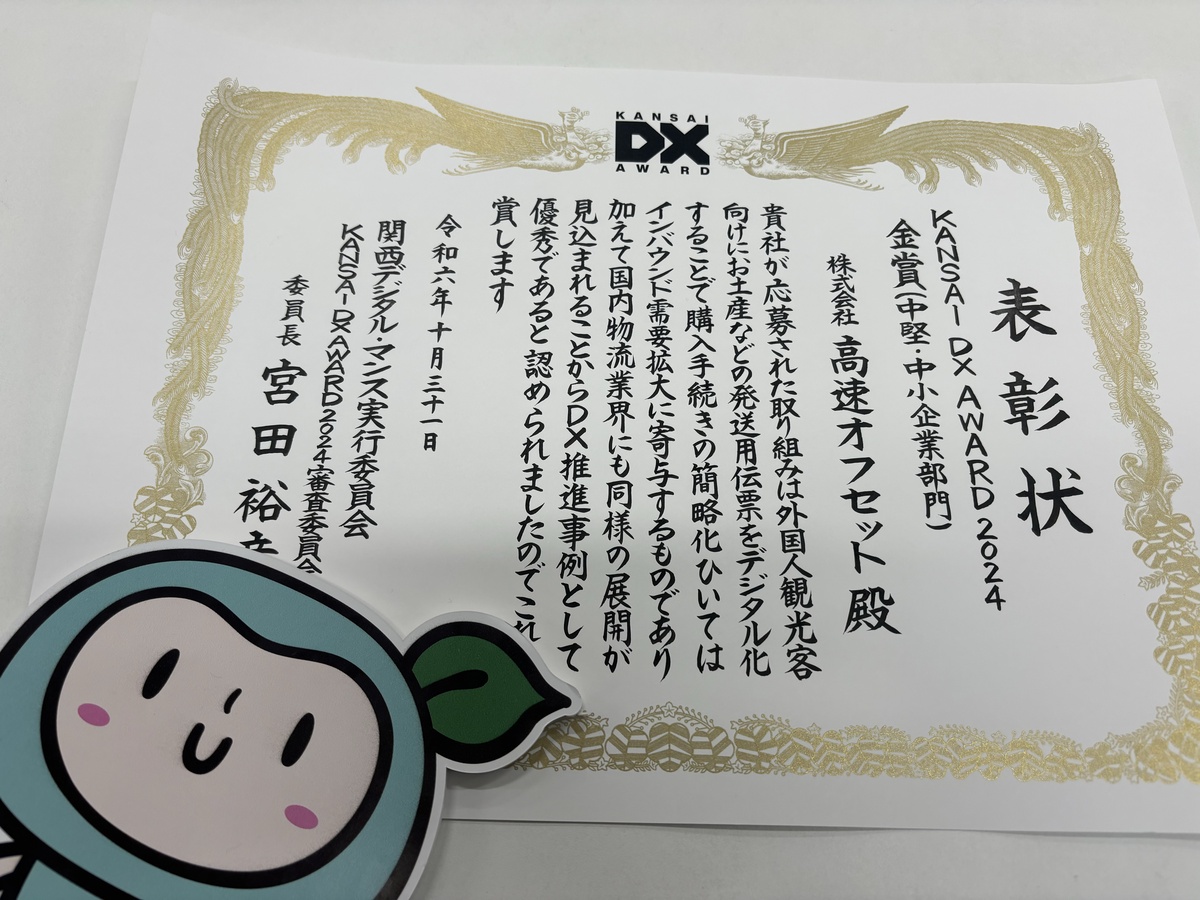 KANSAI
DX
AWARD
表彰状
KANSAI DX AWARD 2024
金賞(中堅・中小企業部門)
株式会社 高速オフセット 殿
貴社が応募された取り組みは外国人観光客
向けにお土産などの発送用伝票をデジタル化
することで購入手続きの簡略化ひいては
インバウンド需要拡大に寄与するものであり
加えて国内物流業界にも同様の展開が
見込まれることからDX推進事例として
優秀であると認められましたのでこれ
賞します
令和六年十月三十一日
関西デジタル・マンス実行委員会
KANSAI DX AWARD 2024審査委員会
委員長 宮田裕